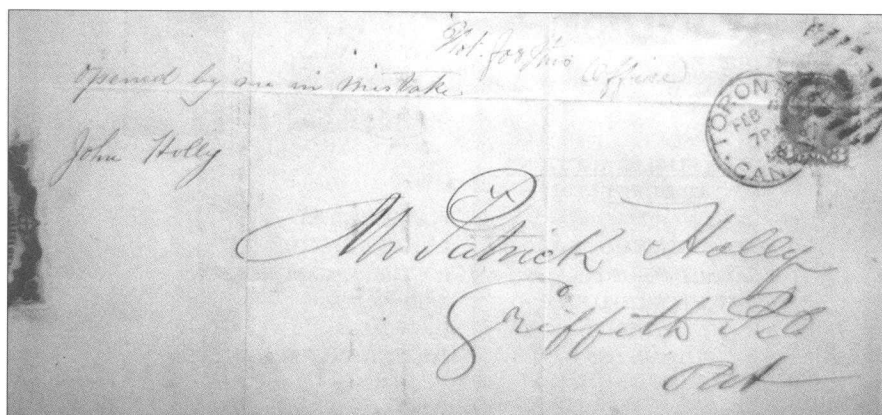 Not for this Office
opened by me in mistake.
John Holly
TORON
FEB
CAN
Mr Patrick Holly
Griffith P.O
Ont